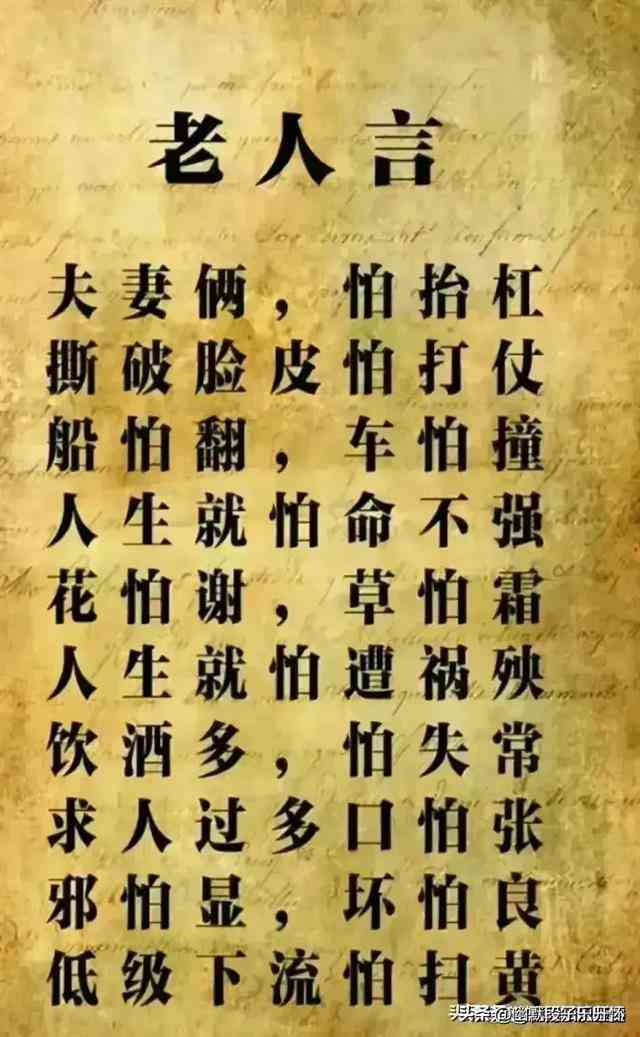 老人言
夫妻俩，怕抬杠
撕破脸皮怕打仗
船怕翻，车怕撞
人生就怕命不强
花怕谢，草怕霜
人生就怕遭祸殃
饮酒多，怕失常
求人过多口怕张
邪怕显，坏怕良
低级下流怕扫黄
头条